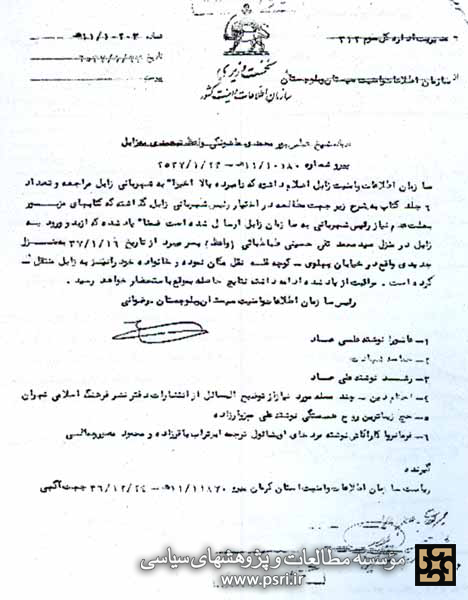 مدیریت اداره کل سوم ۳۱۲
شماره ۱۱/۱۰۲۰۳-ه
از سازمان اطلاعات و امنیت سیستان و بلوچستان
نخست وزیری
سازمان اطلاعات و امنیت کشور
درباره شیخ عباس پور محمدی ماهونکی واعظ تبعیدی به زابل
پیرو شماره ۱۱/۱۰۱۸۰-ه ۲۵۳۷/۱/۲۴
سازمان اطلاعات و امنیت زابل اعلام داشته که نامبرده بالا اخیرا" به شهربانی زابل مراجعه و تعداد
۶ جلد کتاب به شرح زیر جهت مطالعه در اختیار رئیس شهربانی زابل گذاشته که کتابهای مزبور
بعلت عدم نیاز رئیس شهربانی به سازمان زابل ارسال شده است ضمنا" یاد شده که از بدو ورود به
زابل در منزل سید محمد تقی حسینی طباطبائی (واعظ) بسر میبرد از تاریخ ۳۷/۱/۱۶ به منزل
جدیدی واقع در خیابان پهلوی - کوچه نقل مکان نموده و خانواده خود را نیز به زابل منتقل
کرده است. مراقبت از یاد شده ادامه داشته نتایج حاصله بموقع باستحضار خواهد رسید.
رئیس سازمان اطلاعات و امنیت سیستان و بلوچستان - رضوانی
۱- عاشورا نوشته
۲- حماسه شهادت
۳- رشد نوشته علی
۴- احکام دین - چند مسئله مورد نیاز از توضیح المسائل از انتشارات دفتر نشر فرهنگ اسلامی تهران
۵- حج زیباترین روح همبستگی نوشته علی حجازارزاده
۶- فرمانروا کاراکاش نوشته مردخای ای شائول ترجمه ابوتراب باقرزاده و محمود
گیرنده
ریاست سازمان اطلاعات و امنیت استان کرمان پیرو ۱۱/۱۱۸۷۰-ه ۳۶/۱۲/۲۴ جهت آگهی
موسسه مطالعات و پژوهشهای سیاسی
www.psri.ir